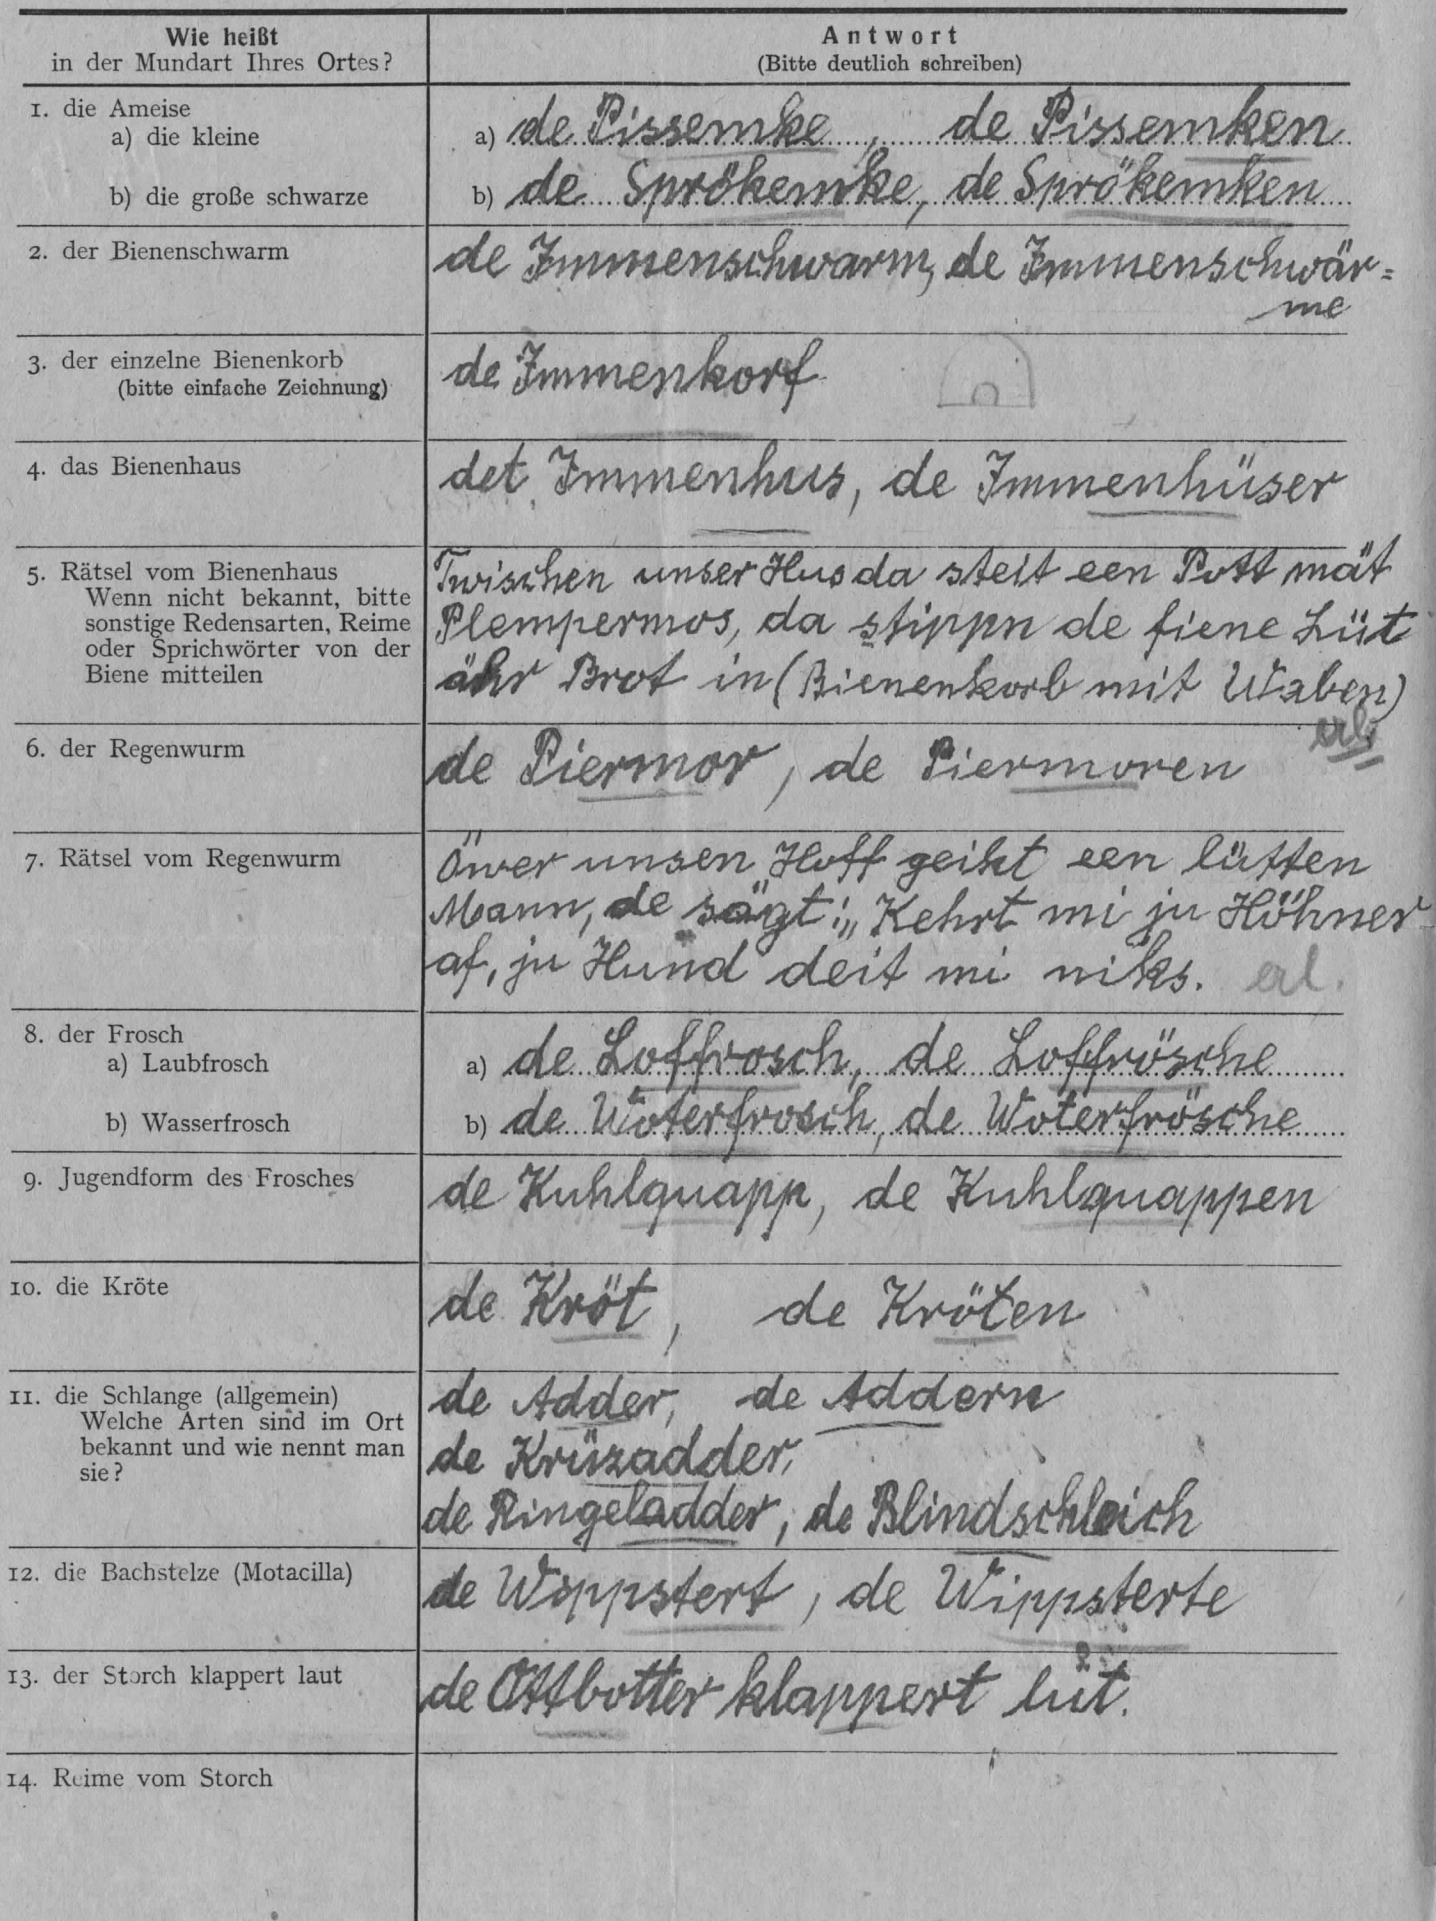 Wie heißt
in der Mundart Ihres Ortes?
Antwort
(Bitte deutlich schreiben)
1. die Ameise
a) die kleine
a) de Pissemke, de Pissemken
b) die große schwarze
b) de Sprökemke, de Sprökemken
2. der Bienenschwarm
de Immenschwarm, de Immenschwär=
me
3. der einzelne Bienenkorb
(bitte einfache Zeichnung)
de Immenkorf
4. das Bienenhaus
det Immenhus, de Immenhüser
5. Rätsel vom Bienenhaus
Wenn nicht bekannt, bitte
sonstige Redensarten, Reime
oder Sprichwörter von der
Biene mitteilen
Twischen unser Hus da steit een Pott mät
Plempermos, da stippn de fiene Lüt
ähr Brot in (Bienenkorb mit Waben)
6. der Regenwurm
de Piermor, de Piermoren
7. Rätsel vom Regenwurm
Öwer unsen Hoff geiht een lütten
Mann, de sägt: „Kehrt mi ju Höhner
af, ju Hund deit mi niks.
8. der Frosch
a) Laubfrosch
a) de Loffrosch, de Loffrösche
b) Wasserfrosch
b) de Woterfrosch, de Woterfrösche
9. Jugendform des Frosches
de Kuhlquapp, de Kuhlquappen
10. die Kröte
de Kröt, de Kröten
11. die Schlange (allgemein)
Welche Arten sind im Ort
bekannt und wie nennt man
sie?
de Adder, de Addern
de Krüzadder,
de Ringeladder, de Blindschleich
12. die Bachstelze (Motacilla)
de Wippstert, de Wippsterte
13. der Storch klappert laut
de Ottbotter klappert lüt.
14. Reime vom Storch